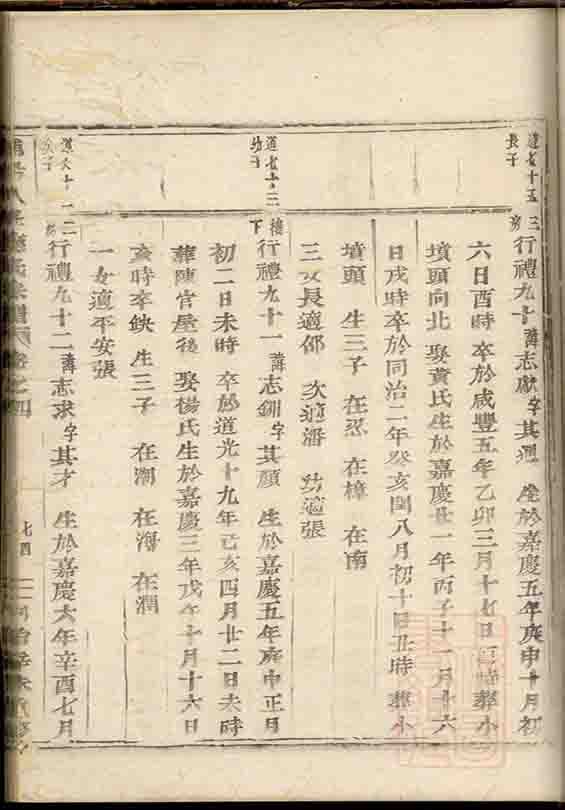 道長十五
長子
三房行禮九十諱志獻字其 生於嘉慶五年庚申十月初
六日酉時 卒於咸豐五年乙卯三月十七日 時 葬小
墳頭向北 娶黃氏生於嘉慶廿一年丙子十一月十六
日戌時卒於同治二年癸亥閏八月初十日丑時 葬小
墳頭 生三子 在忍 在樟 在南
三女長適邵 次適潘 幼適張
幼子
樓下行禮九十一諱志 字其顏 生於嘉慶五年庚申正月
初二日未時 卒於道光十九年己亥四月廿二日未時
葬陳官屋後 娶楊氏生於嘉慶三年戊午十月十六日
亥時卒缺 生三子 在潮 在海 在潤
一女適平安張
行禮九十二諱志求字其才 生於嘉慶六年辛酉七月
卷之四
七四